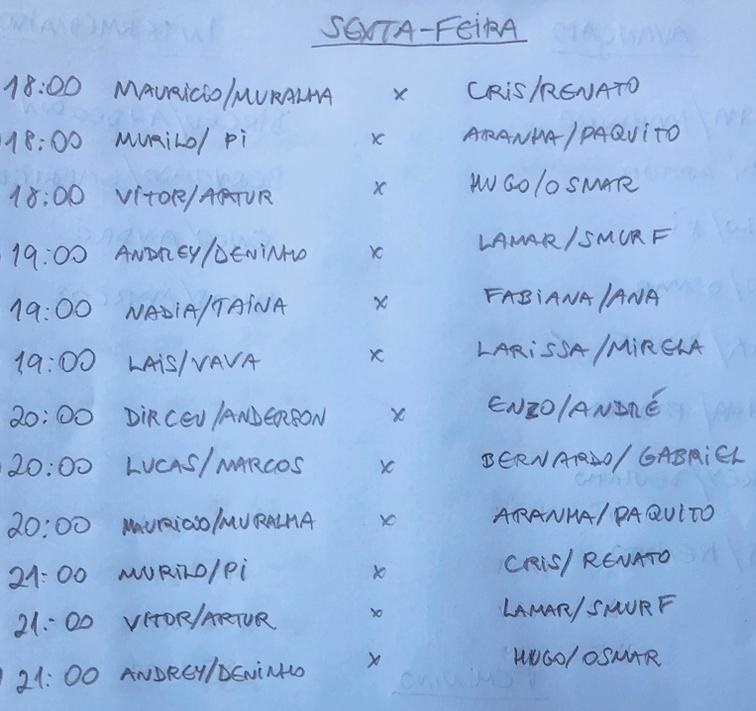 SEXTA-FEIRA
18:00 MAURICIO/MURALHA x CRIS/RENATO
18:00 MURILO/ Pi x ARANHA/PAQUITO
18:00 VITOR/ARTUR x HUGO/OSMAR
19:00 ANDREY/DENINHO x LAMAR/SMURF
19:00 NADIA/TAINA x FABIANA/ANA
19:00 LAIS/VAVA x LARISSA/MIRELA
20:00 DIRCEU/ANDERSON x ENZO/ANDRÉ
20:00 LUCAS/MARCOS x BERNARDO/GABRIEL
20:00 MAURICIO/MURALHA x ARANHA/PAQUITO
21:00 MURILO/Pi x CRIS/RENATO
21:00 VITOR/ARTUR x LAMAR/SMURF
21:00 ANDREY/DENINHO x HUGO/OSMAR